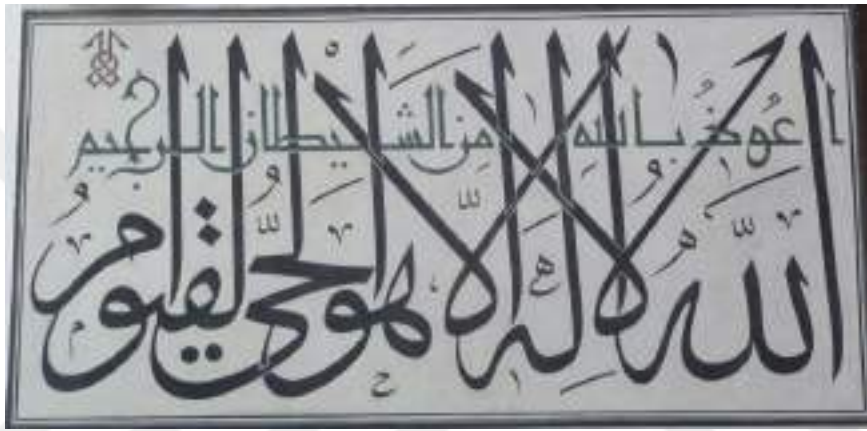 اعوذ بالله من الشيطان الرجيم
الله لا اله الا هو الحي القيوم